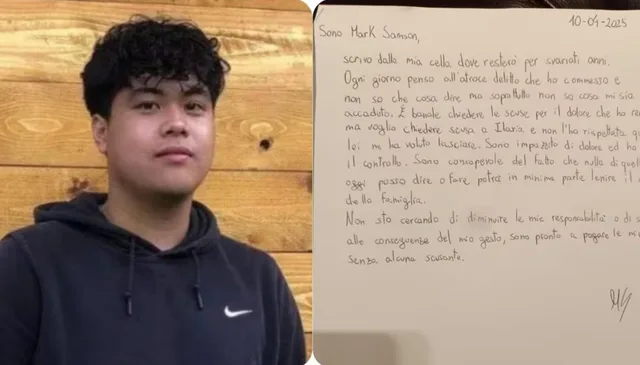 10-04-2025
Sono Mark Samson,
scrivo dalla mia cella dove resterò per svariati anni.
Ogni giorno penso all'atroce delitto che ho commesso e
non so che cosa dire ma soprattutto non so cosa mi sia
accaduto. È banale chiedere le scuse per il dolore che ho
ma voglio chiedere scusa a Ilaria e non l'ho rispettata
lei mi ha voluto lasciare. Sono impazzito di dolore ed ho
il controllo. Sono consapevole del fatto che nulla di
oggi posso dire o fare potrà in minima parte lenire il
della famiglia.
Non sto cercando di diminuire le mie responsabilità o di
alle conseguenze del mio gesto, sono pronto a pagare le
senza alcuna scusante.
MS